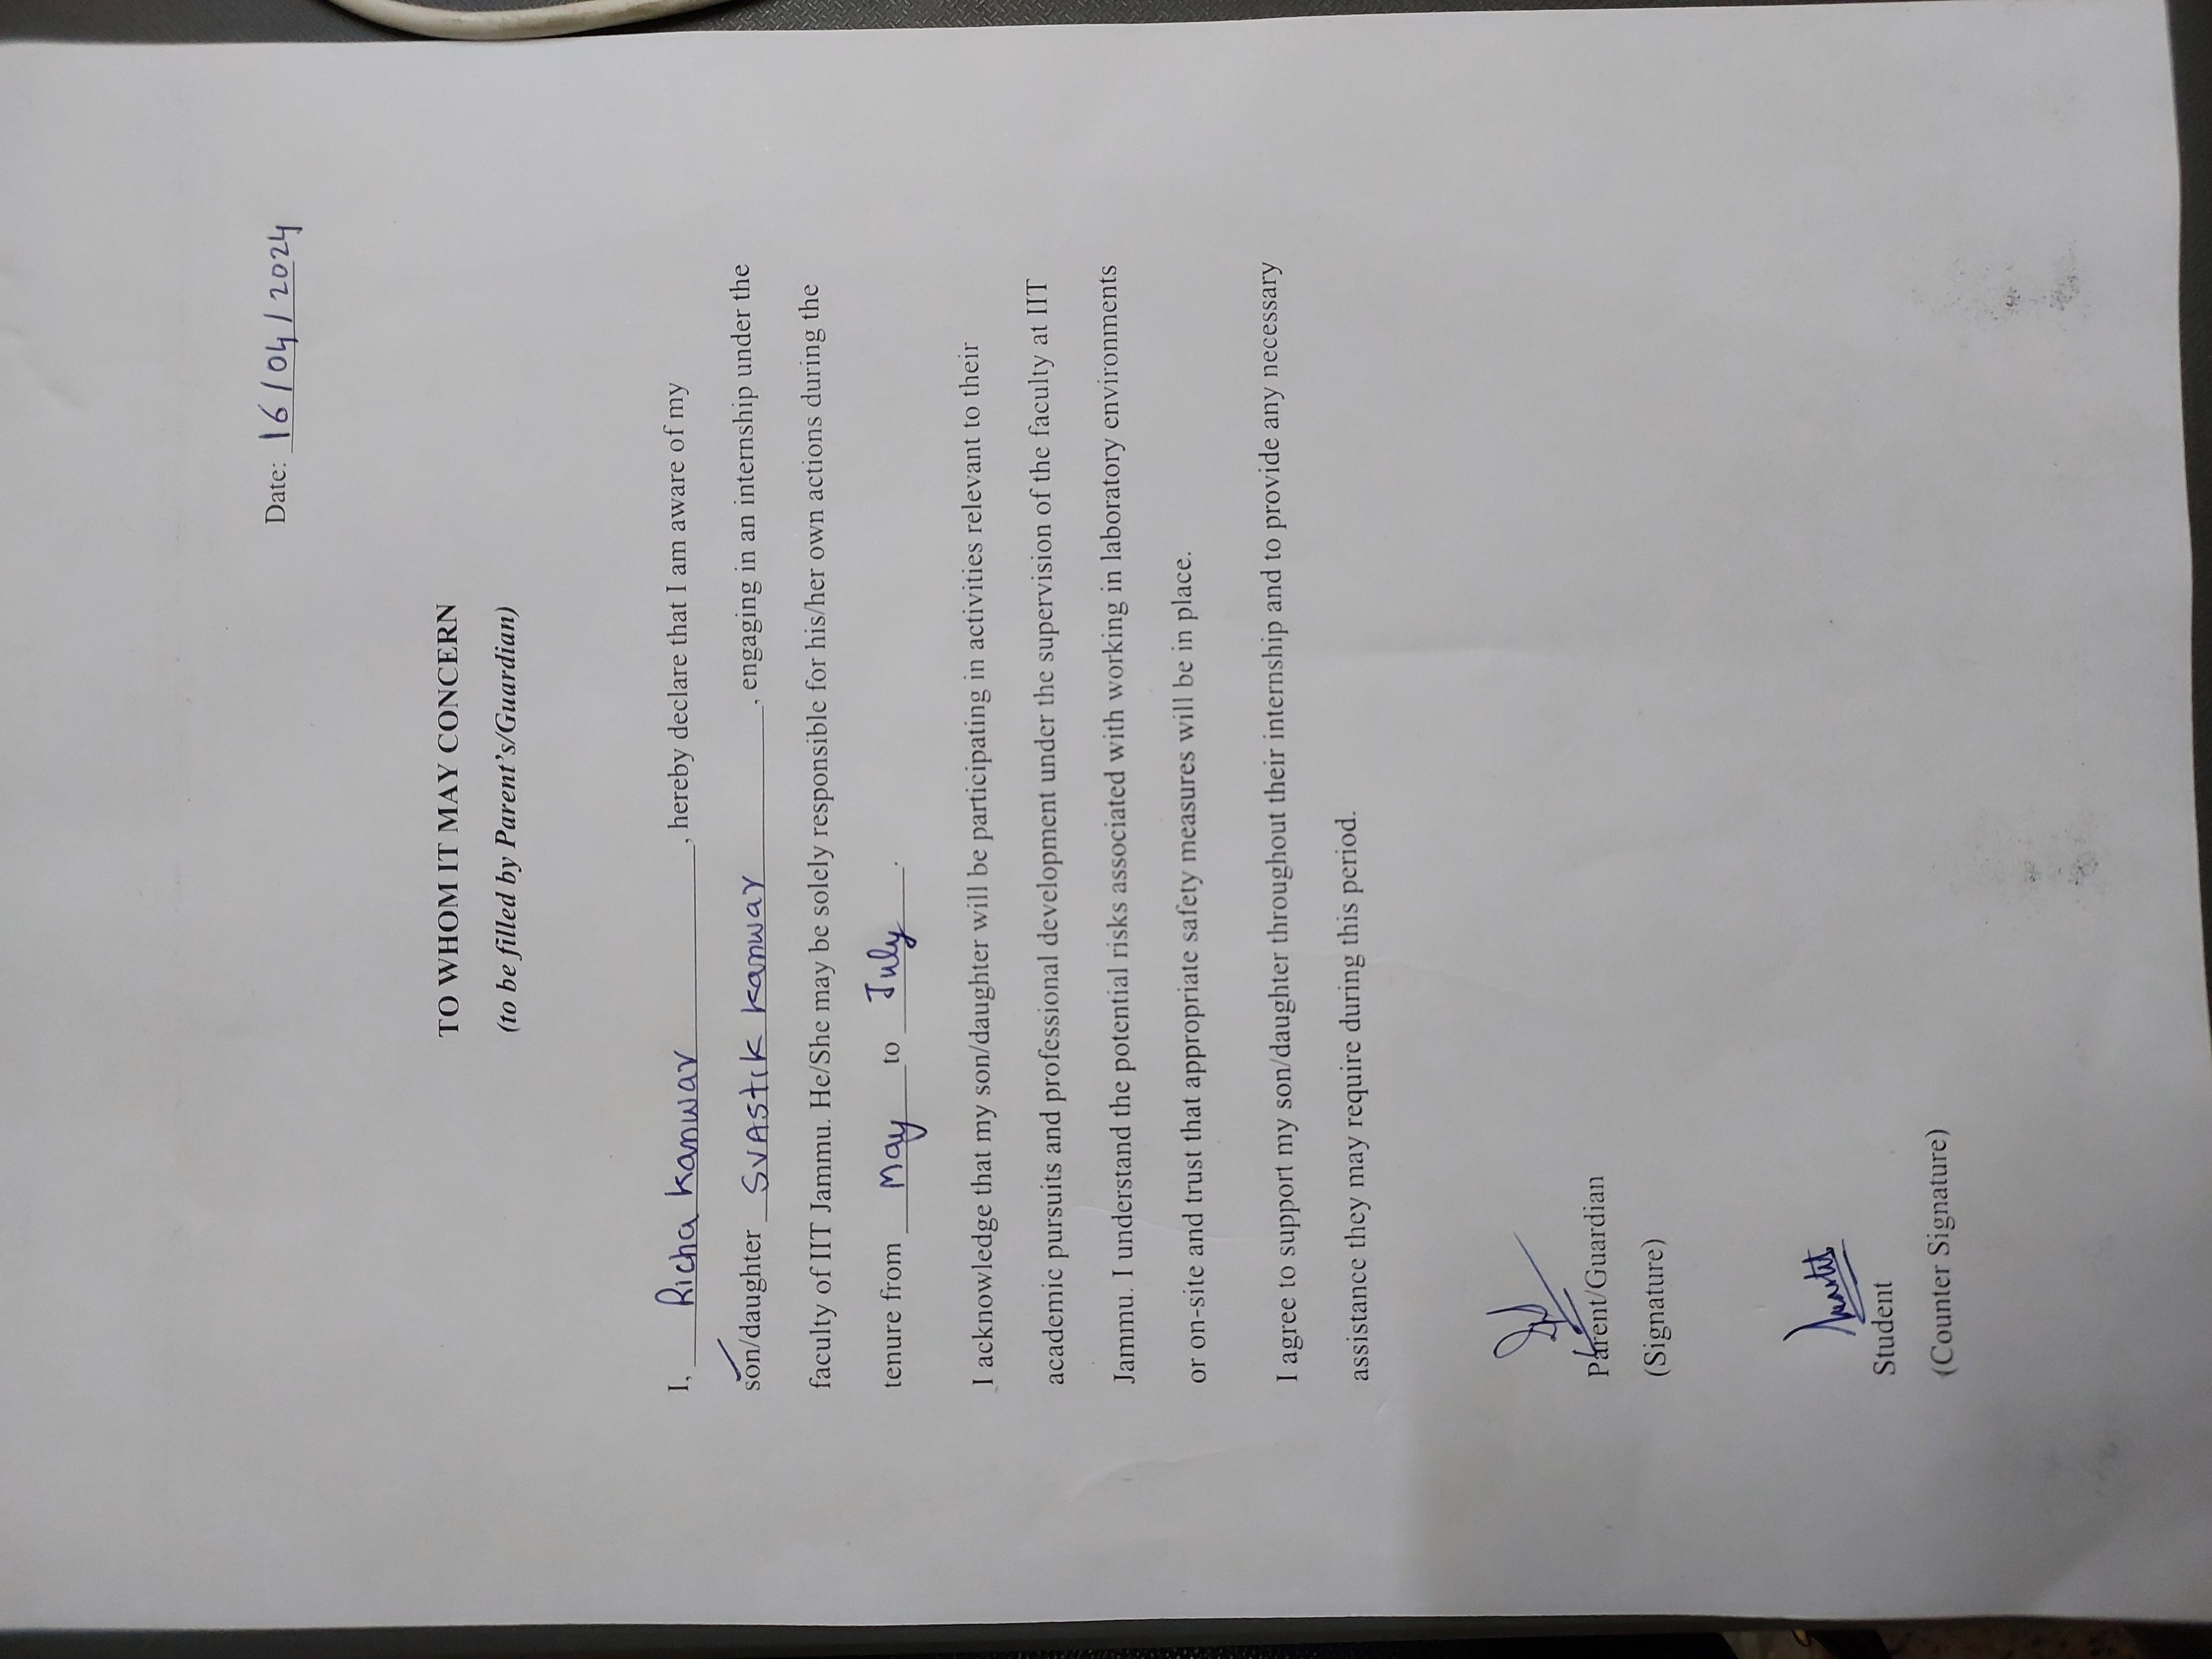 Date: 16/04/2024
TO WHOM IT MAY CONCERN
(to be filled by Parent's/Guardian)
I, Richa Kanwar, hereby declare that I am aware of my
son/daughter SVAStik Kanwar, engaging in an internship under the
faculty of IIT Jammu. He/She may be solely responsible for his/her own actions during the
tenure from May to July.
I acknowledge that my son/daughter will be participating in activities relevant to their
academic pursuits and professional development under the supervision of the faculty at IIT
Jammu. I understand the potential risks associated with working in laboratory environments
or on-site and trust that appropriate safety measures will be in place.
I agree to support my son/daughter throughout their internship and to provide any necessary
assistance they may require during this period.
Parent/Guardian
(Signature)
Student
(Counter Signature)